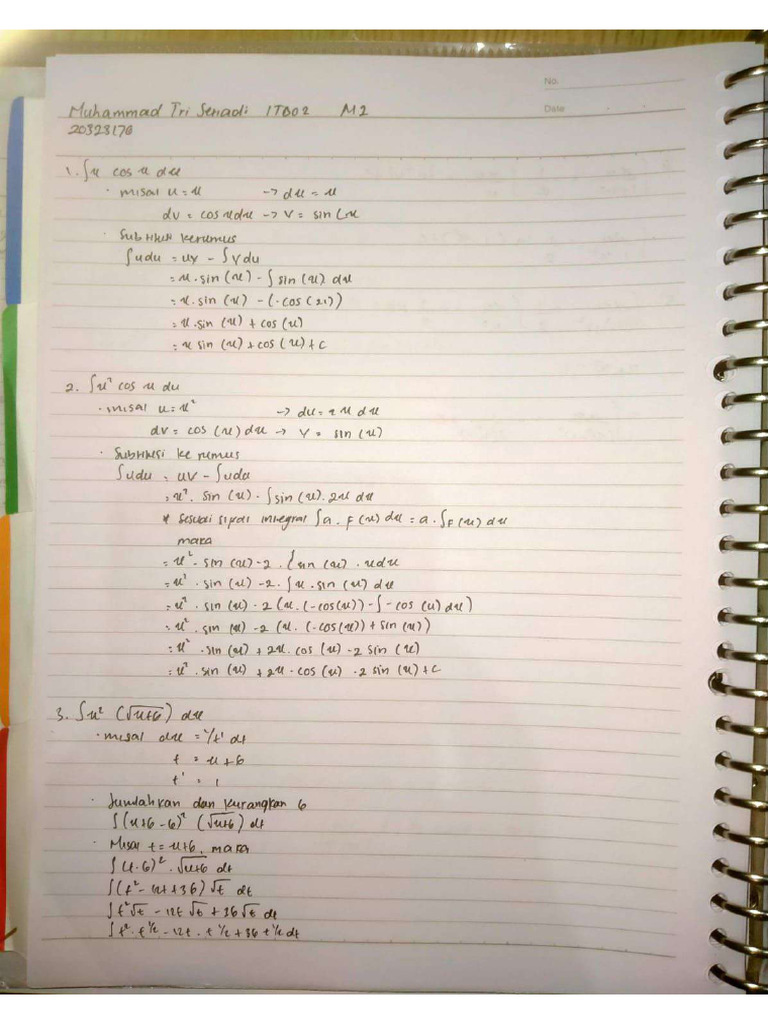 No.
Date
Muhammad Tri Senadi ITB02 M2
20323170
1. ∫x cos x dx
· misal u = x → du = x
dv = cos x dx → v = sin (x
· Subtitusi ke rumus
∫udu = uv - ∫vdu
= x. sin (x) - ∫ sin (x) dx
= x. sin (x) - (-cos (x))
= x. sin (x) + cos (x)
= x sin (x) + cos (x) + c
2. ∫x² cos x dx
· misal u = x² → du = 2 x dx
dv = cos (x) dx → v = sin (x)
· Subtitusi ke rumus
∫udu = uv - ∫udu
= x². sin (x) - ∫sin (x). 2x dx
* sesuai sipat integral ∫a. F(x) dx = a. ∫F(x) dx
maka
= x² - sin (x) - 2. ∫sin (x) . x dx
= x² . sin (x) - 2. ∫x . sin (x) dx
= x² . sin (x) - 2 (x. (-cos(x)) - ∫-cos (x) dx)
= x² . sin (x) - 2 (x. (-cos(x)) + sin (x))
= x² . sin (x) + 2x. cos (x) - 2 sin (x)
= x² . sin (x) + 2x . cos (x) - 2 sin (x) + c
3. ∫x² (√x+6) dx
· misal dx = 1/t' dt
t = x + 6
t' = 1
· Jumlahkan dan kurangkan 6
∫(x+6-6)² (√x+6) dt
· Misal t = x+6, maka
∫(t-6)² . √x+6 dt
∫(t² - 12t + 36) √t dt
∫t²√t - 12t √t + 36√t dt
∫t². t½ - 12t . t½ + 36 t½ dt